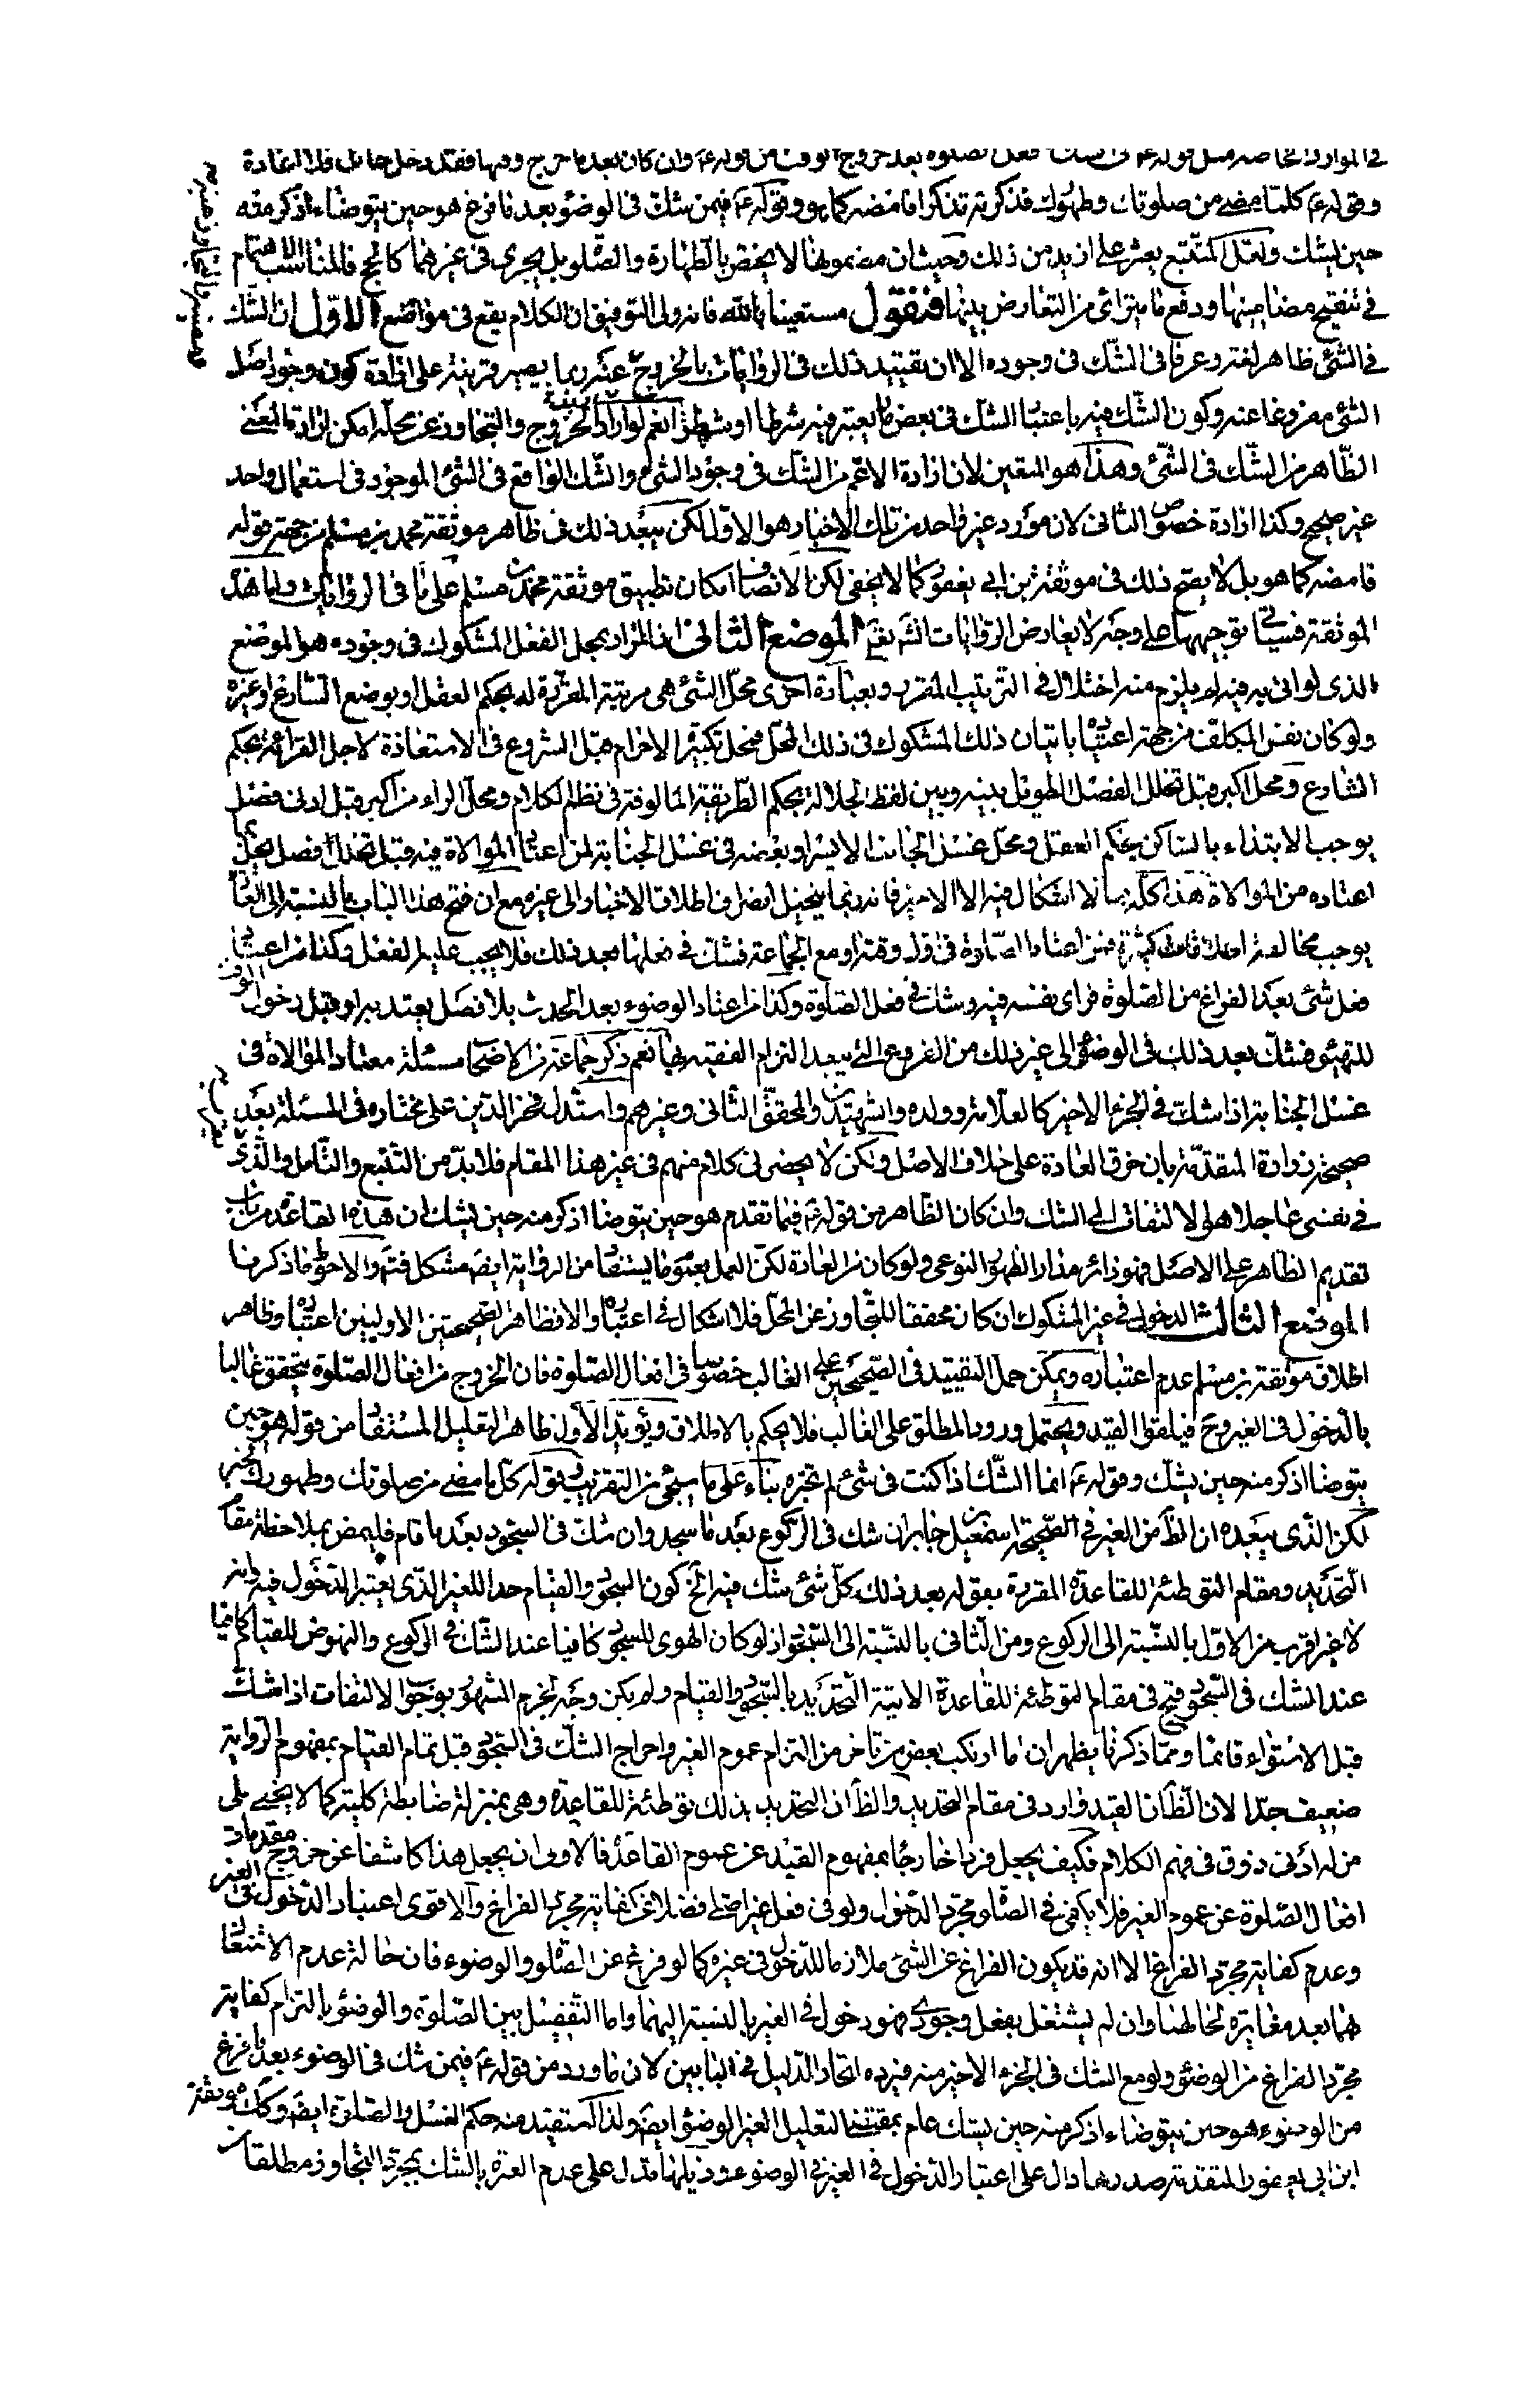 في الموارد الخاصه مثل قوله ع في الشك في فعل الصلوة بعد خروج الوقت من قوله ع وان كان بعد ما خرج وقتها فقد دخل حائل فلا اعادة
وقوله ع كلما مضى من صلوتك وطهورك فذكرته تذكرا فامضه كما هو وقوله ع فيمن شك في الوضوء بعد ما فرغ هو حين يتوضاء اذكر منه
حين يشك ولعل المتتبع يعثر على ازيد من ذلك وحيث ان مضمونها لا يختص بالطهارة والصلوة بل يجري في غيرهما كالحج فالمناسب الاهتمام
في تنقيح مضامينها ودفع ما يترائى من التعارض بينها فنقول مستعينا بالله فانه ولي التوفيق ان الكلام يقع في مواضع الاول ان الشك
في الشئ ظاهر لغة وعرفا في الشك في وجوده الا ان تقييد ذلك في الروايات بالخروج عنه ربما يصير قرينة على ارادة كون وجود اصل
الشئ مفروغا عنه وكون الشك فيه باعتبار الشك في بعض ما يعتبر فيه شرطا او شطرا نعم لو اريد الخروج والتجاوز عن محله امكن ارادة المعنى
الظاهر من الشك في الشئ وهذا هو المتعين لان ارادة الاعم من الشك في وجود الشئ والشك الواقع في الشئ الموجود في استعمال واحد
غير صحيح وكذا ارادة خصوص الثاني لان مورد غير واحد من تلك الاخبار هو الاول لكن يبعد ذلك في ظاهر موثقة محمد بن مسلم من جهة قوله
فامضه كما هو بل لا يصح ذلك في موثقة بن ابي يعفور كما لا يخفى لكن الانصاف امكان تطبيق موثقة محمد بن مسلم على ما في الروايات واما هذه
الموثقة فسيأتي توجيهها على وجه لا يعارض الروايات انش تع الموضع الثاني ان المراد بمحل الفعل المشكوك في وجوده هو الموضع
الذي لو اتي به فيه لم يلزم منه اختلال في الترتيب المقرر وبعبارة اخرى محل الشئ هي مرتبته المقررة له بحكم العقل او بوضع الشارع او غيره
ولو كان نفس المكلف من جهة اعتياده باتيان ذلك المشكوك في ذلك المحل فمحل تكبيرة الاحرام قبل الشروع في الاستعاذة لاجل القرائة بحكم
الشارع ومحل اكبر قبل تخلل الفصل الطويل بينه وبين لفظ الجلالة بحكم الطريقة المالوفة في نظم الكلام ومحل الراء من اكبر قبل ادنى فصل
يوجب الابتداء بالساكن بحكم العقل ومحل غسل الجانب الايسر او بعضه في غسل الجنابة لمن اعتاد الموالاة فيه قبل تخلل فصل يخل بما
اعتاده من الموالاة هذا كله مما لا اشكال فيه الا الاخير فانه ربما يتخيل انصراف اطلاق الاخبار الى غيره مع ان فتح هذا الباب بالنسبة الى العادة
يوجب مخالفة اطلاقات كثيرة فمن اعتاد الصلوة في اول وقتها او مع الجماعة فشك في فعلها بعد ذلك فلا يجب عليه الفعل وكذا من اعتاد
فعل شئ بعد الفراغ من الصلوة فراى نفسه فيه وشك في فعل الصلوة وكذا من اعتاد الوضوء بعد الحدث بلا فصل يعتد به او قبل دخول الوقت
للتهيؤ فشك بعد ذلك في الوضوء الى غير ذلك من الفروع التي يبعد التزام الفقيه بها نعم ذكر جماعة من الاصحاب مسئلة معتاد الموالاة في
غسل الجنابة اذا شك في الجزء الاخير كالعلامة وولده والشهيدين والمحقق الثاني وغيرهم واستدل فخر الدين على مختاره في المسئلة بعد
صحيحة زرارة المتقدمة بان خرق العادة على خلاف الاصل ولكن لا يحضرني كلام منهم في غير هذا المقام فلا بد من التتبع والتامل والذي
في نفسي عاجلا هو الالتفات الى الشك وان كان الظاهر من قوله ع فيما تقدم هو حين يتوضأ اذكر منه حين يشك ان هذه القاعدة من باب
تقديم الظاهر على الاصل فهو دائر مدار الظهور النوعي ولو كان من العادة لكن العمل بعموم ما يستفاد من الرواية ايضا مشكل فتامل والاحوط ما ذكرنا
الموضع الثالث الدخول في غير المشكوك ان كان محققا للتجاوز عن المحل فلا اشكال في اعتباره والا فظاهر الصحيحتين الاوليين اعتباره وظاهر
اطلاق موثقة بن مسلم عدم اعتباره ويمكن حمل التقييد في الصحيحين على الغالب خصوصا في افعال الصلوة فان الخروج من افعال الصلوة يتحقق غالبا
بالدخول في الغير وح فيلغو القيد ويحتمل ورود المطلق على الغالب فلا يحكم بالاطلاق ويؤيد الاول ظاهر التعليل المستفاد من قوله هو حين
يتوضا اذكر منه حين يشك وقوله ع انما الشك اذا كنت في شئ لم تجزه بناء على ما سيجئ من التقريب وقوله كل ما مضى من صلوتك وطهورك الخبر
لكن الذي يبعده ان الظ من الغير في الصحيحة اسمعيل بن جابر ان شك في الركوع بعد ما سجد وان شك في السجود بعد ما قام فليمض بملاحظة مقام
التحديد ومقام التوطئة للقاعدة المقررة بقوله بعد ذلك كل شئ شك فيه الخ كون السجود والقيام حدا للغير الذي يعتبر الدخول فيه وانه
لا غير اقرب من الاول بالنسبة الى الركوع ومن الثاني بالنسبة الى السجود اذ لو كان الهوى للسجود كافيا عند الشك في الركوع والنهوض للقيام كافيا
عند الشك في السجود قبح في مقام التوطئة للقاعدة الاتية التحديد بالسجود والقيام ولم يكن وجه لجزم المشهور بوجوب الالتفات اذا شك
قبل الاستواء قائما ومما ذكرنا يظهر ان ما ارتكب بعض من تاخر من التزام عموم الغير واخراج الشك في السجود قبل تمام القيام بمفهوم الرواية
ضعيف جدا لان الظ ان القيد وارد في مقام التحديد والظ ان التحديد بذلك توطئة للقاعدة وهي بمنزلة ضابطة كلية كما لا يخفى على
من له ادنى ذوق في فهم الكلام فكيف يجعل فردا خارجا بمفهوم القيد عن عموم القاعدة فالاولى ان يجعل هذا كاشفا عن خروج مقدمات
افعال الصلوة عن عموم الغير فلا يكفي في الصلوة مجرد الدخول ولو في فعل غير اصلي فضلا عن كفاية مجرد الفراغ والاقوى اعتبار الدخول في الغير
وعدم كفاية مجرد الفراغ الا انه قد يكون الفراغ عن الشئ ملازما للدخول في غيره كما لو فرغ عن الصلوة والوضوء فان حالة عدم الاشتغال
بهما بعد مغايرة لحالهما وان لم يشتغل بفعل وجودي فهو دخول في الغير بالنسبة اليهما واما التفصيل بين الصلوة والوضوء بالتزام كفاية
مجرد الفراغ من الوضوء ولو مع الشك في الجزء الاخير منه فيرده اتحاد الدليل في البابين لان ما ورد من قوله ع فيمن شك في الوضوء بعد ما فرغ
من الوضوء هو حين يتوضاء اذكر منه حين يشك عام بمقتضى التعليل لغير الوضوء ايضا ولذا استفيد منه حكم الغسل والصلوة ايضا وكك موثقة
ابن ابي يعفور المتقدمة صدرها دال على اعتبار الدخول في الغير في الوضوء وذيلها يدل على عدم العبرة بالشك بمجرد التجاوز مطلقا